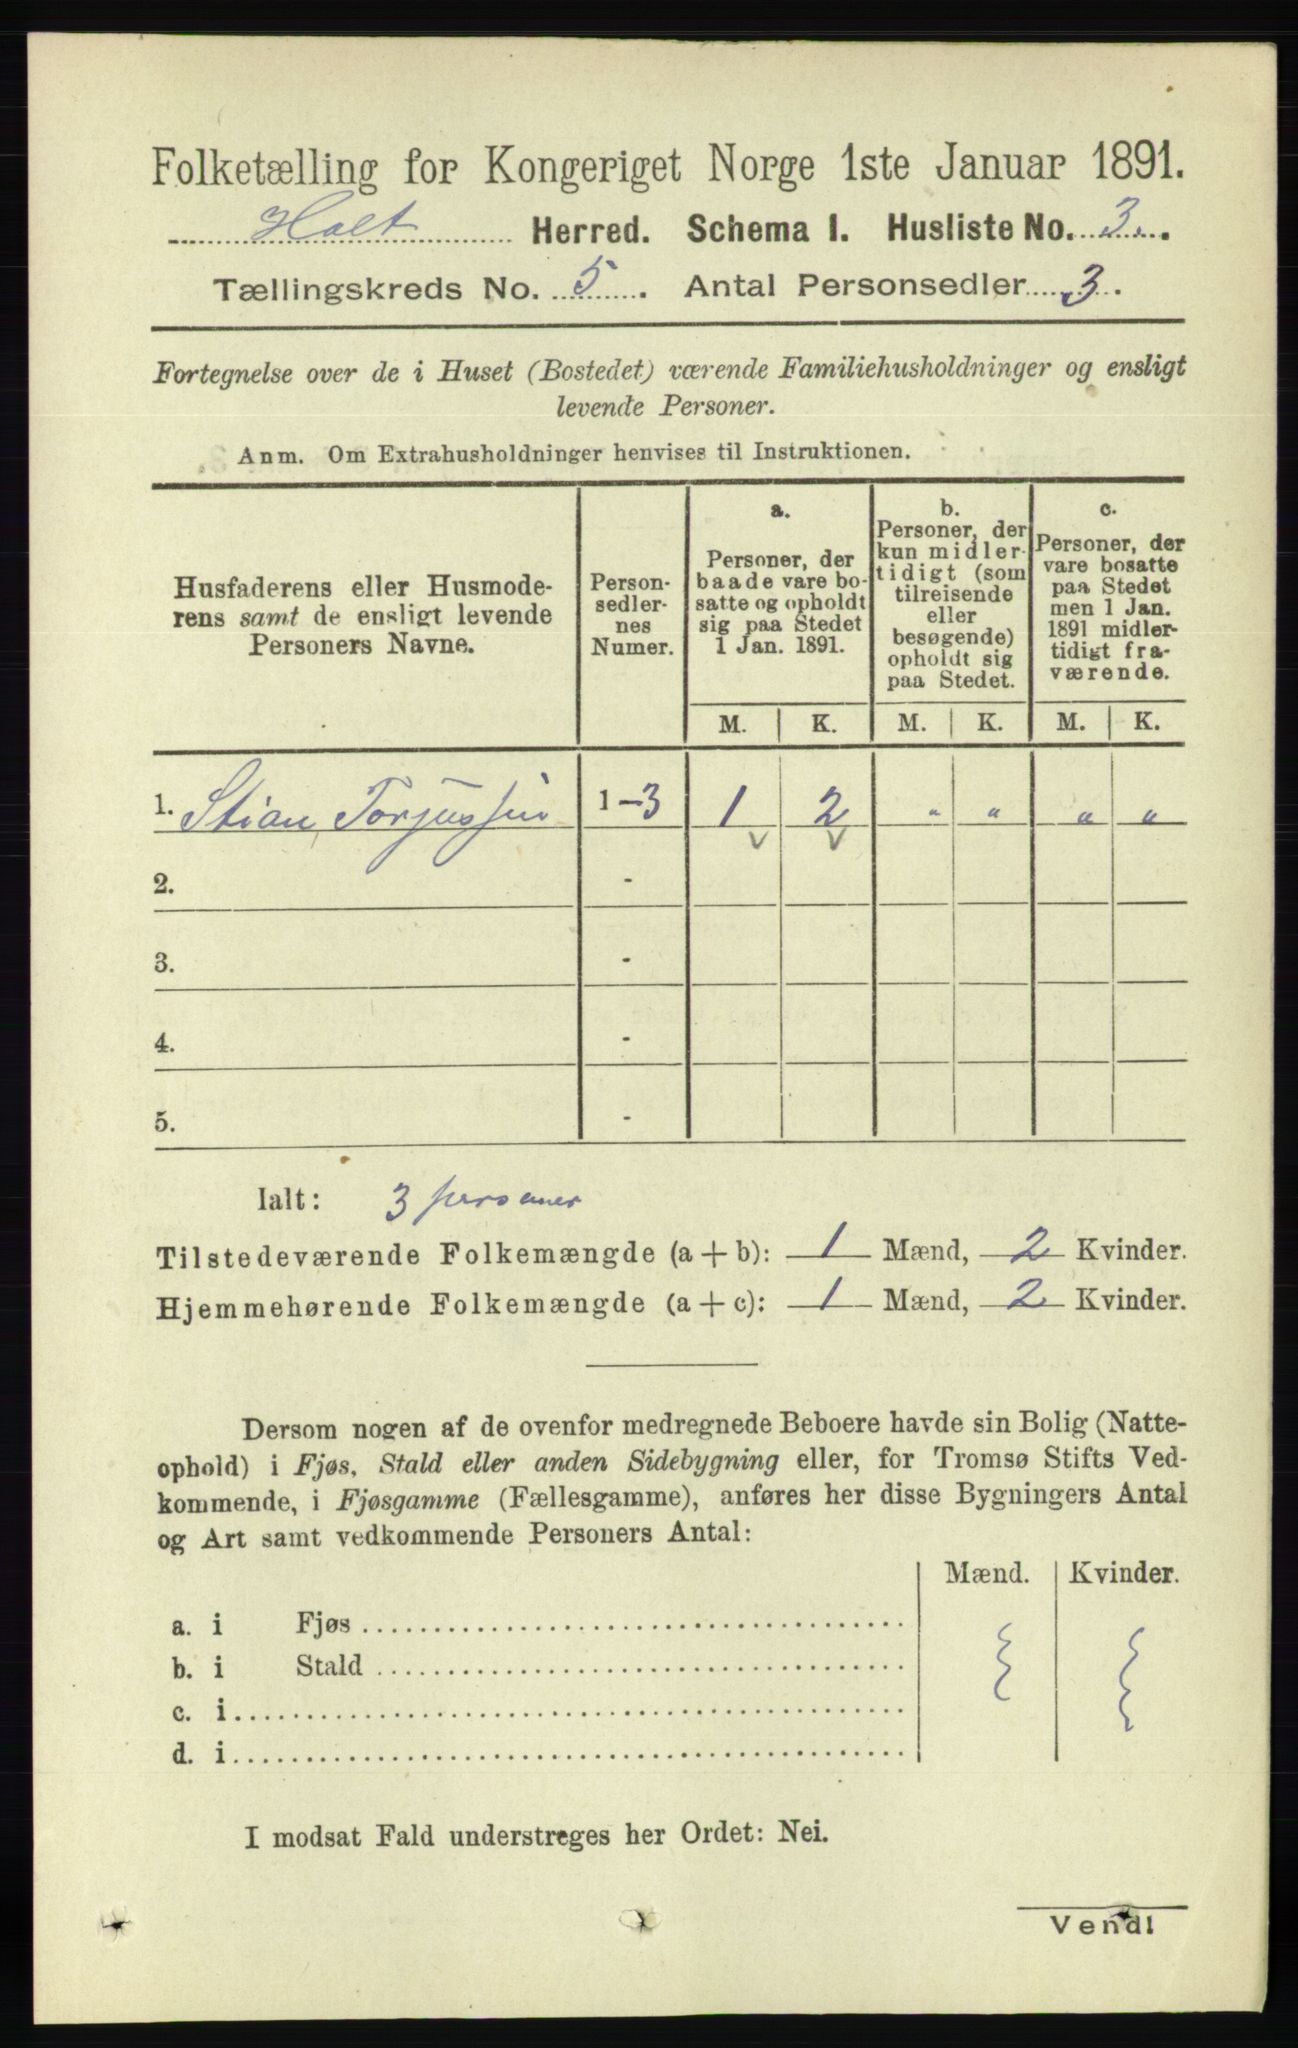 Folketælling for Kongeriget Norge 1ste Januar 1891.
Holt Herred. Schema I. Husliste No. 3.
Tællingskreds No. 5. Antal Personsedler 3.
Fortegnelse over de i Huset (Bostedet) værende Familiehusholdninger og ensligt
levende Personer.
Anm. Om Extrahusholdninger henvises til Instruktionen.
Husfaderens eller Husmode-
rens samt de ensligt levende
Personers Navne.
Person-
sedler-
nes
Numer.
a.
Personer, der
baade vare bo-
satte og opholdt
sig paa Stedet
1 Jan. 1891.
b.
Personer, der
kun midler-
tidigt (som
tilreisende
eller
besøgende)
opholdt sig
paa Stedet.
c.
Personer, der
vare bosatte
paa Stedet
men 1 Jan.
1891 midler-
tidigt fra-
værende.
M. K. M. K. M. K.
1. Stian Torjussen 1-3 1 2 " " " "
2. -
3. -
4. -
5. -
Ialt: 3 personer
Tilstedeværende Folkemængde (a + b): 1 Mænd, 2 Kvinder.
Hjemmehørende Folkemængde (a + c): 1 Mænd, 2 Kvinder.
Dersom nogen af de ovenfor medregnede Beboere havde sin Bolig (Natte-
ophold) i Fjøs, Stald eller anden Sidebygning eller, for Tromsø Stifts Ved-
kommende, i Fjøsgamme (Fællesgamme), anføres her disse Bygningers Antal
og Art samt vedkommende Personers Antal:
Mænd. Kvinder.
a. i Fjøs
b. i Stald
c. i
d. i
I modsat Fald understreges her Ordet: Nei.
Vend!